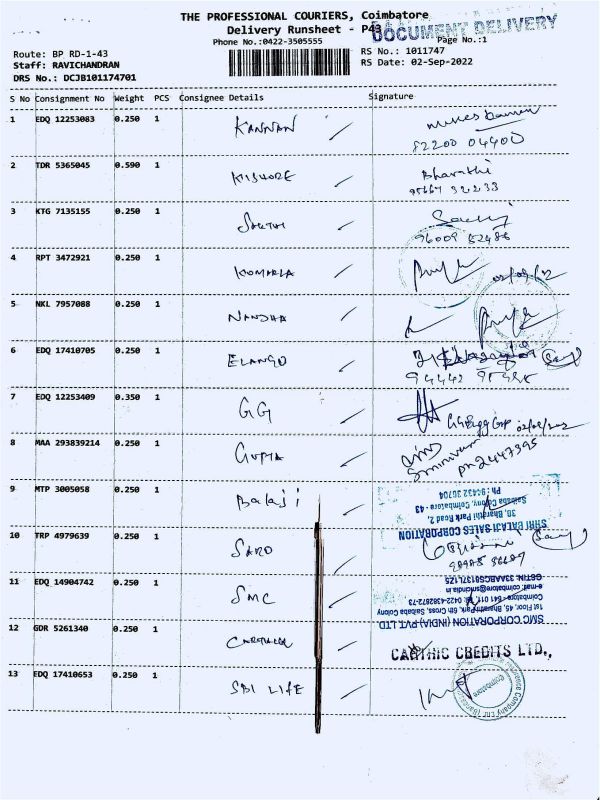 THE PROFESSIONAL COURIERS, Coimbatore
DOCUMENT DELIVERY
Delivery Runsheet - P43
Phone No.:0422-3505555 Page No.:1
Route: BP RD-1-43 RS No.: 1011747
Staff: RAVICHANDRAN RS Date: 02-Sep-2022
DRS No.: DCJB101174701
S No Consignment No Weight PCS Consignee Details Signature
1 EDQ 12253083 0.250 1 KANNAN
82200 04400
2 TDR 5365045 0.590 1 KISHORE Bharathi
95667 32233
3 KTG 7135155 0.250 1 SAKTHI
96009 52486
4 RPT 3472921 0.250 1 KOMALA
5 NKL 7957088 0.250 1 NANDHA
6 EDQ 17410705 0.250 1 ELANGO
94442
7 EDQ 12253409 0.350 1 GG
8 MAA 293839214 0.250 1 GUPTA
Srinivasan
Ph 2447395
9 MTP 3005058 0.250 1 Balaji
SHRI BALAJI SALES CORPORATION
30, Bharathi Park Road 2,
Saibaba Colony, Coimbatore - 43
Ph : 94432 30704
10 TRP 4979639 0.250 1 SARO
11 EDQ 14904742 0.250 1 SMC
SMC CORPORATION (INDIA) PVT. LTD
1st Floor, 45, Bharathi Park, 6th Cross, Saibaba Colony
Coimbatore - 641 011. Ph: 0422-4382872-73
12 GDR 5261340 0.250 1
CARTHIC CREDITS LTD.,
13 EDQ 17410653 0.250 1 SBI LIFE
Coimbatore